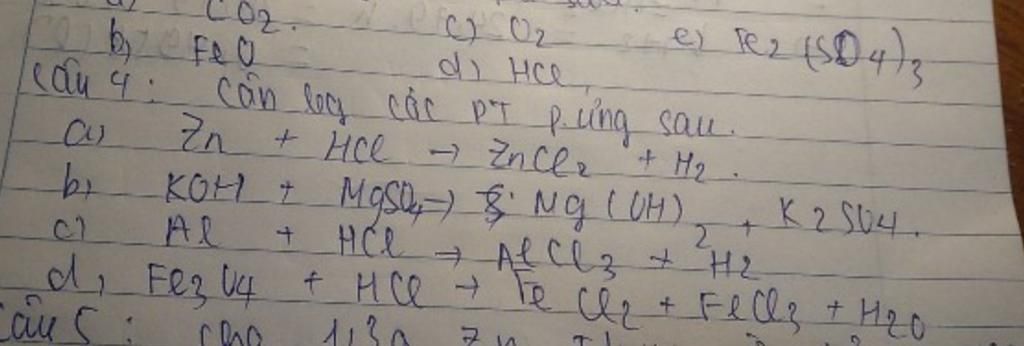 CO2. c) O2 e) Fe2(SO4)3
b, FeO d) HCl
Câu 4: Cân các PT p.ứng sau.
a) Zn + HCl → ZnCl2 + H2.
b, KOH + MgSO4 → Mg(OH)2 + K2SO4.
c) Al + HCl → AlCl3 + H2
d, Fe3O4 + HCl → FeCl2 + FeCl3 + H2O
Câu 5: Cho 1,3g Zn